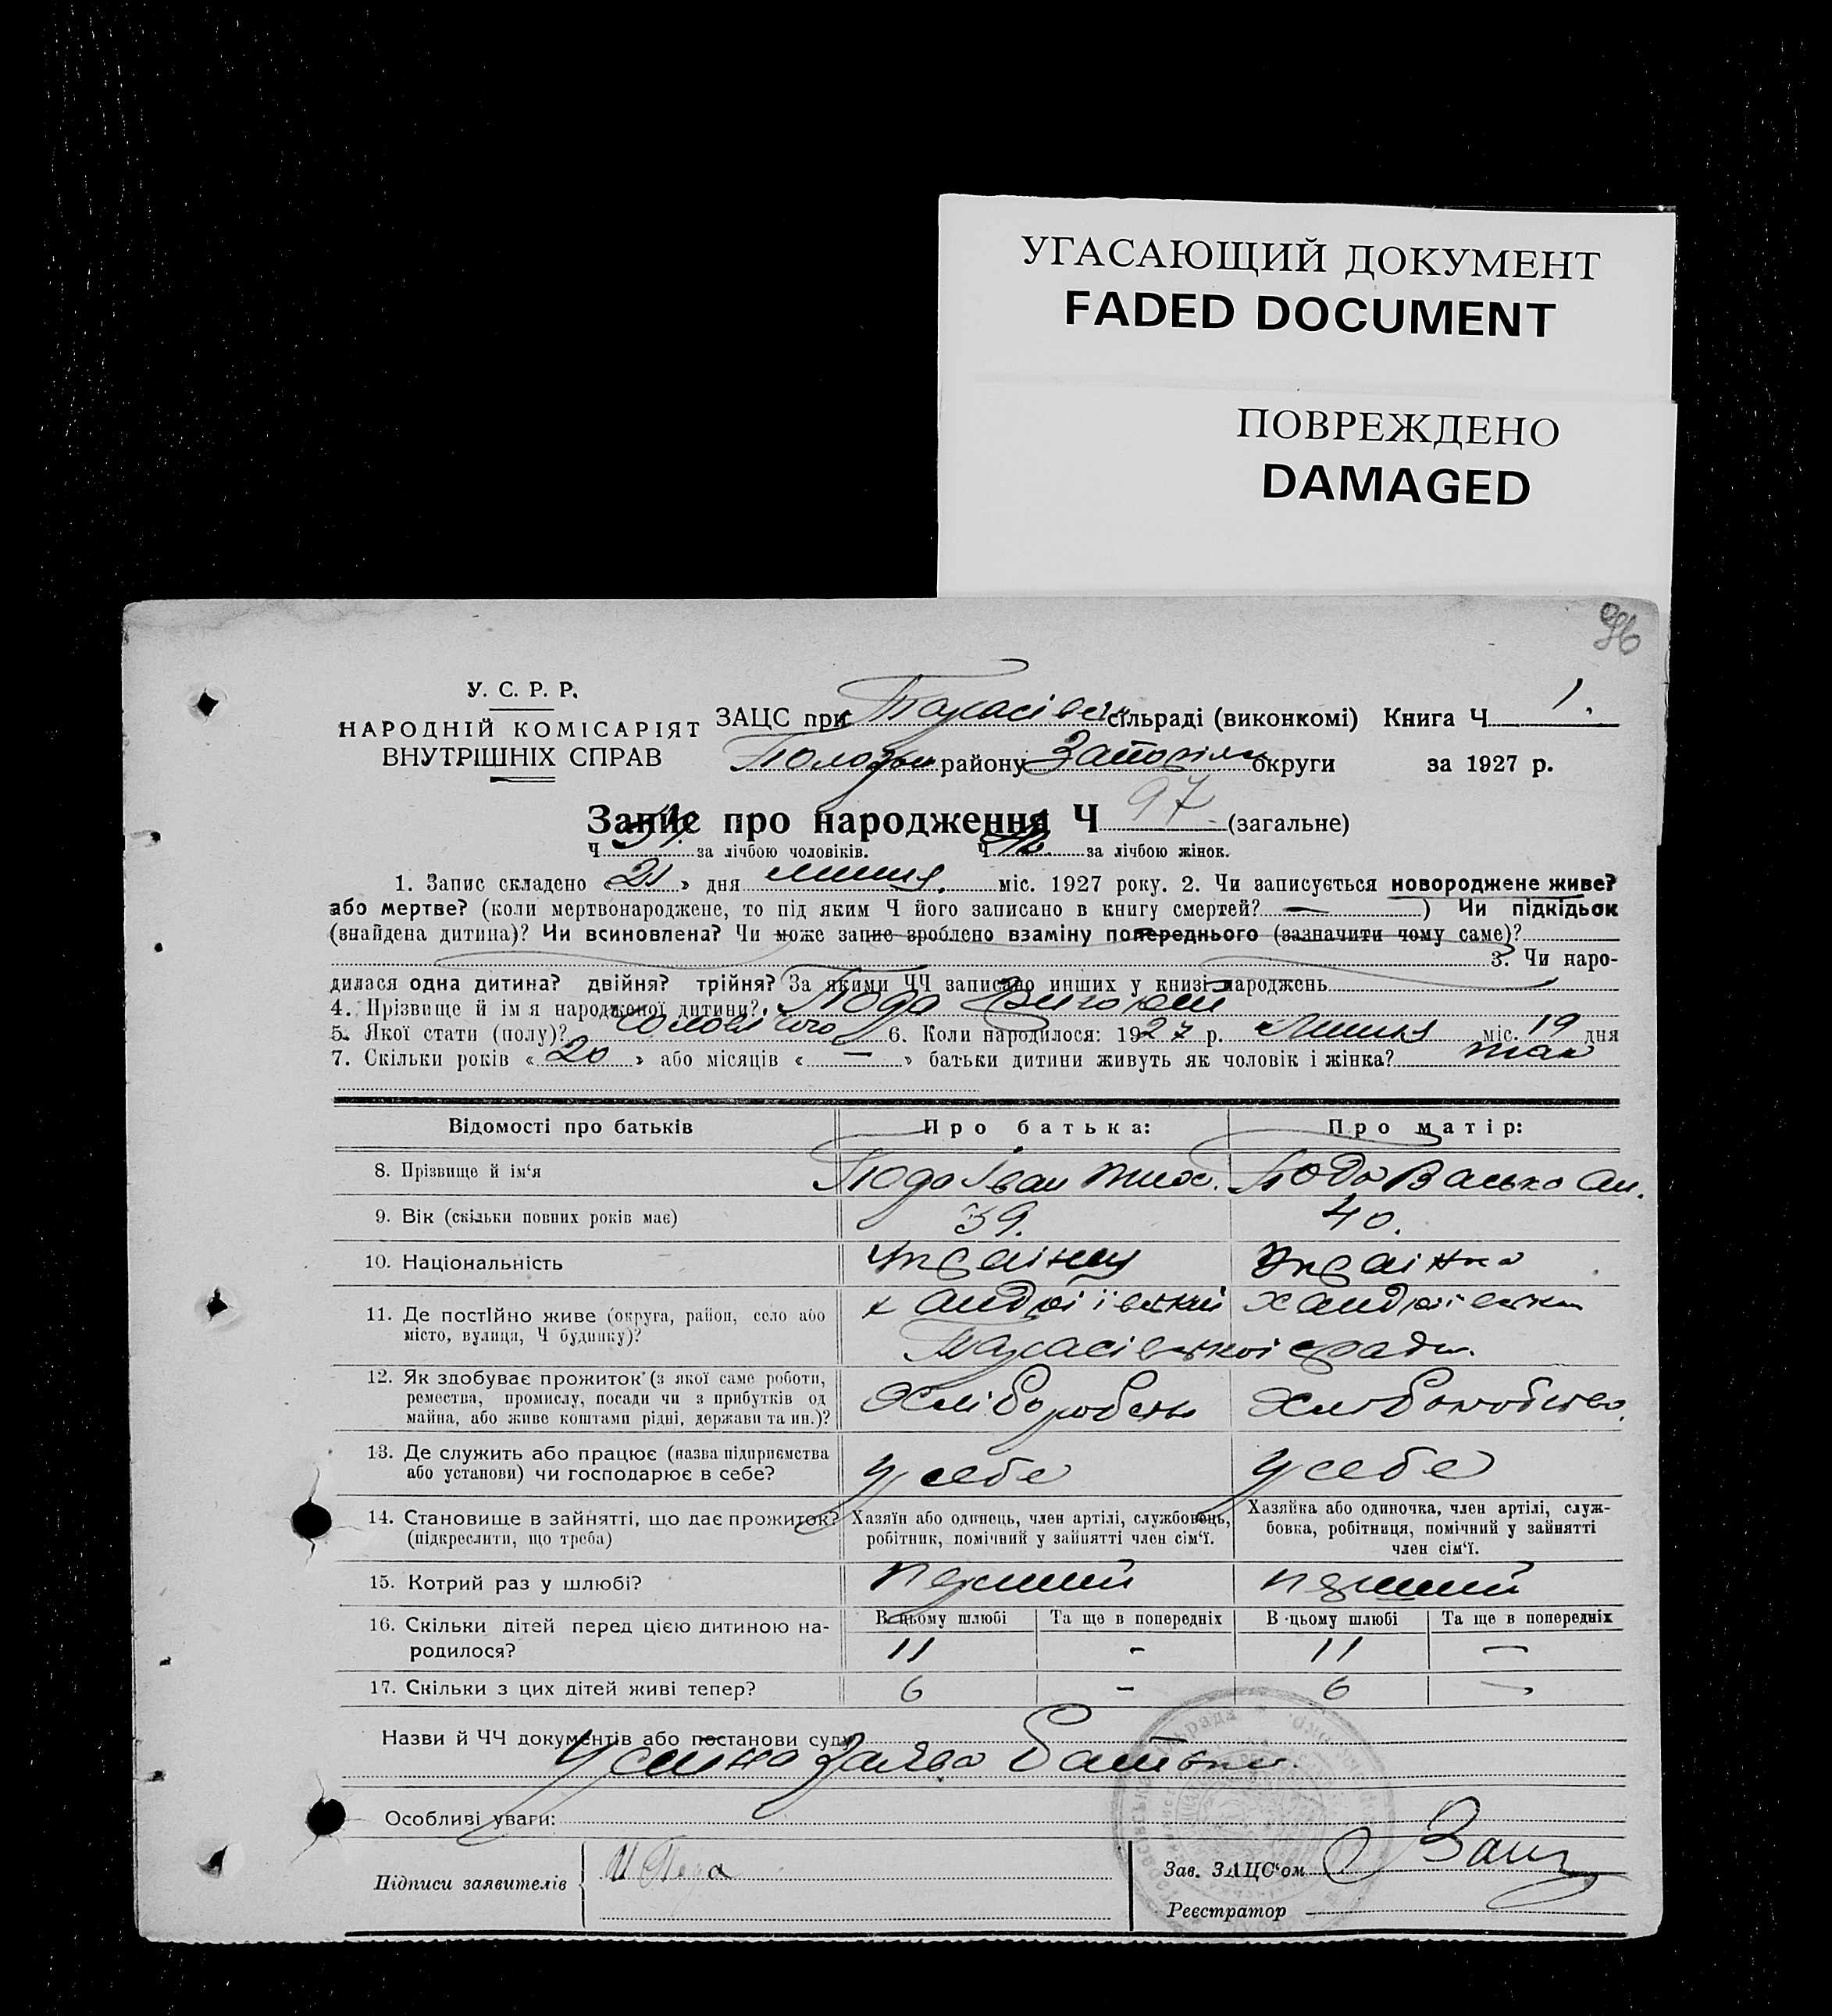 УГАСАЮЩИЙ ДОКУМЕНТ
FADED DOCUMENT
ПОВРЕЖДЕНО
DAMAGED
96
У. С. Р. Р.
НАРОДНІЙ КОМІСАРІЯТ
ВНУТРІШНІХ СПРАВ
ЗАЦС при Тарасівськ сільраді (виконкомі) Книга Ч 1.
району Запоріж округи за 1927 р.
Запис про народження Ч 97 (загальне)
Ч за лічбою чоловіків. Ч за лічбою жінок.
1. Запис складено « 21 » дня липня. міс. 1927 року. 2. Чи записується новороджене живе?
або мертве? (коли мертвонароджене, то під яким Ч його записано в книгу смертей? — ) Чи підкідьок
(знайдена дитина)? Чи всиновлена? Чи може запис зроблено взаміну попереднього (зазначити чому саме)?
3. Чи наро-
дилася одна дитина? двійня? трійня? За якими ЧЧ записано инших у книзі народжень
4. Прізвище й ім'я народженої дитини? Пода
5. Якої стати (полу)? чоловічого 6. Коли народилося: 1927 р. Липня міс. 19 дня
7. Скільки років « 20 » або місяців « — » батьки дитини живуть як чоловік і жінка? так
Відомості про батьків Про батька: Про матір:
8. Прізвище й ім'я Пода Іван Пода Васька
9. Вік (скільки повних років має) 39. 40.
10. Національність Українц Українка
11. Де постійно живе (округа, район, село або х Андріївський х Андріївськи
місто, вулиця, Ч будинку)? Тарасівської сради.
12. Як здобуває прожиток (з якої саме роботи,
ремества, промислу, посади чи з прибутків од
майна, або живе коштами рідні, держави та ин.)? Хліборобств Хліборобство.
13. Де служить або працює (назва підприємства
або установи) чи господарює в себе? у себе у себе
14. Становище в зайнятті, що дає прожиток? Хазяїн або одинець, член артілі, службовець, Хазяйка або одиночка, член артілі, служ-
(підкреслити, що треба) робітник, помічний у зайнятті член сім'ї. бовка, робітниця, помічний у зайнятті
член сім'ї.
15. Котрий раз у шлюбі? перший перший
16. Скільки дітей перед цією дитиною на- В цьому шлюбі Та ще в попередніх В цьому шлюбі Та ще в попередніх
родилося? 11 - 11 —
17. Скільки з цих дітей живі тепер? 6 - 6 —
Назви й ЧЧ документів або постанови суду
Усина заява батька.
Особливі уваги:
Підписи заявителів И Пода
Зав. ЗАЦС'ом
Реєстратор